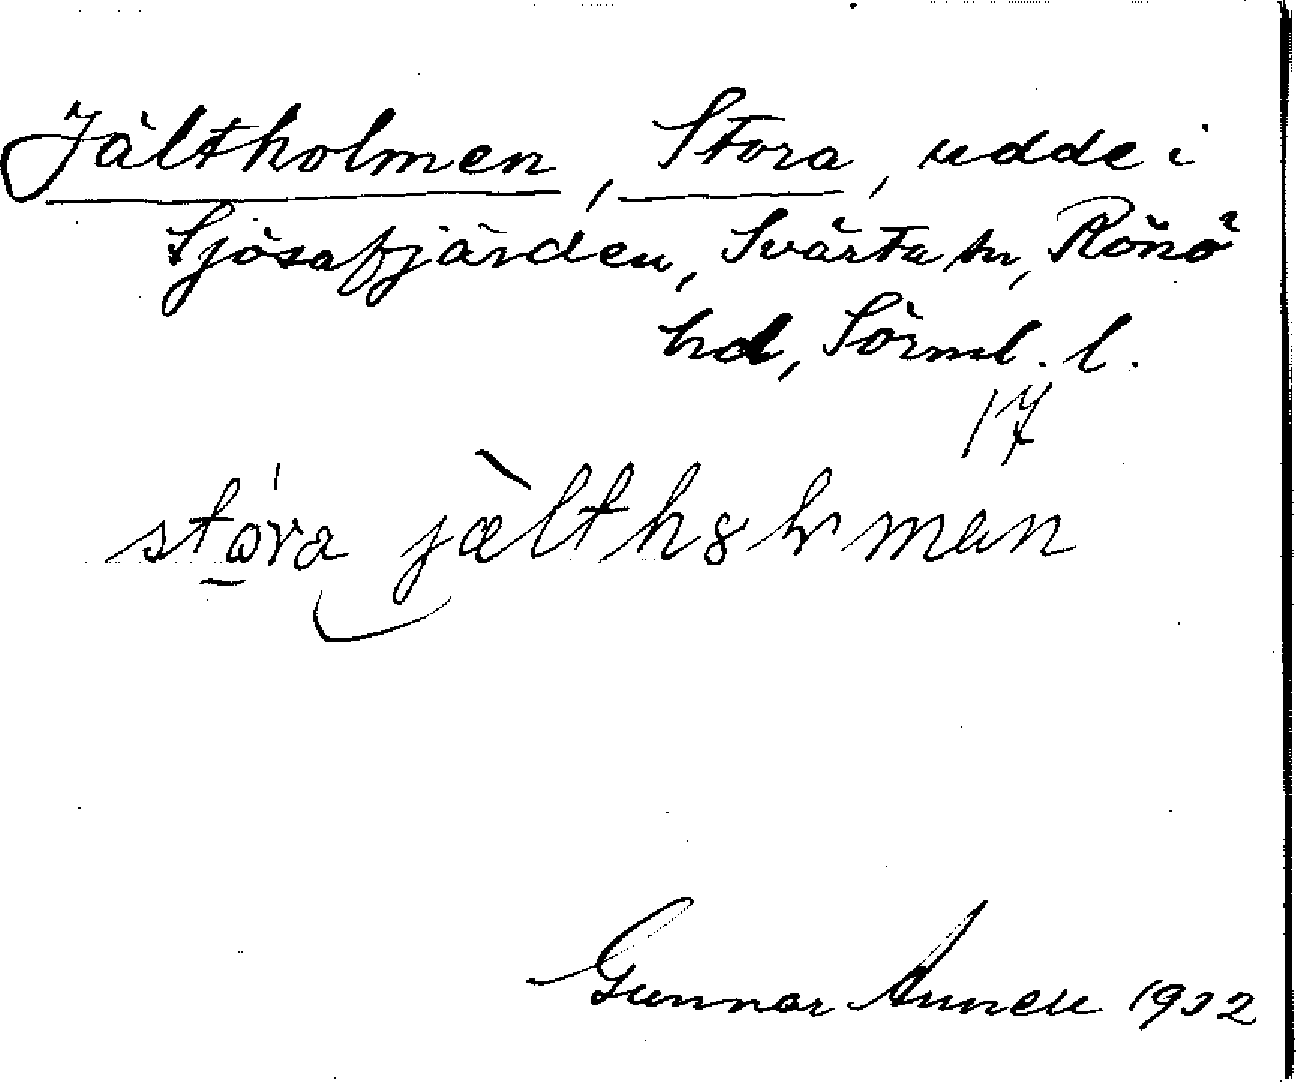 Jältholmen, Stora, udde i
Sjösafjärden, Svärta sn, Rönö
hd, Sörml. l.
17
stora jælthólmen
Gunnar 1932